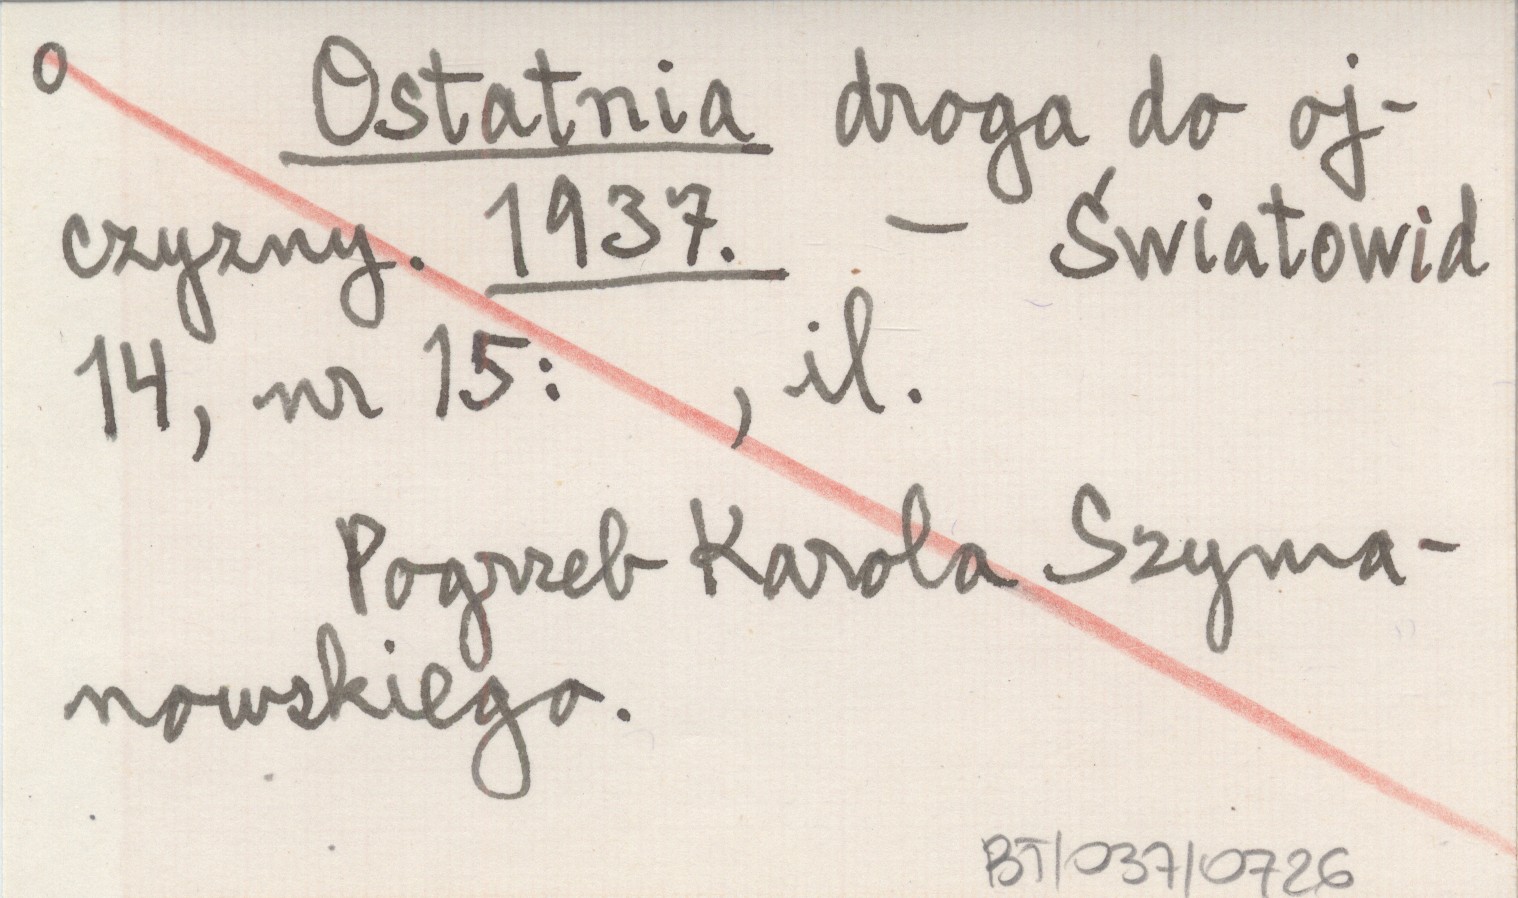 o Ostatnia droga do oj-
czyzny. 1937. – Światowid
14, nr 15: , il.
Pogrzeb Karola Szyma-
nowskiego.
BT/037/0726